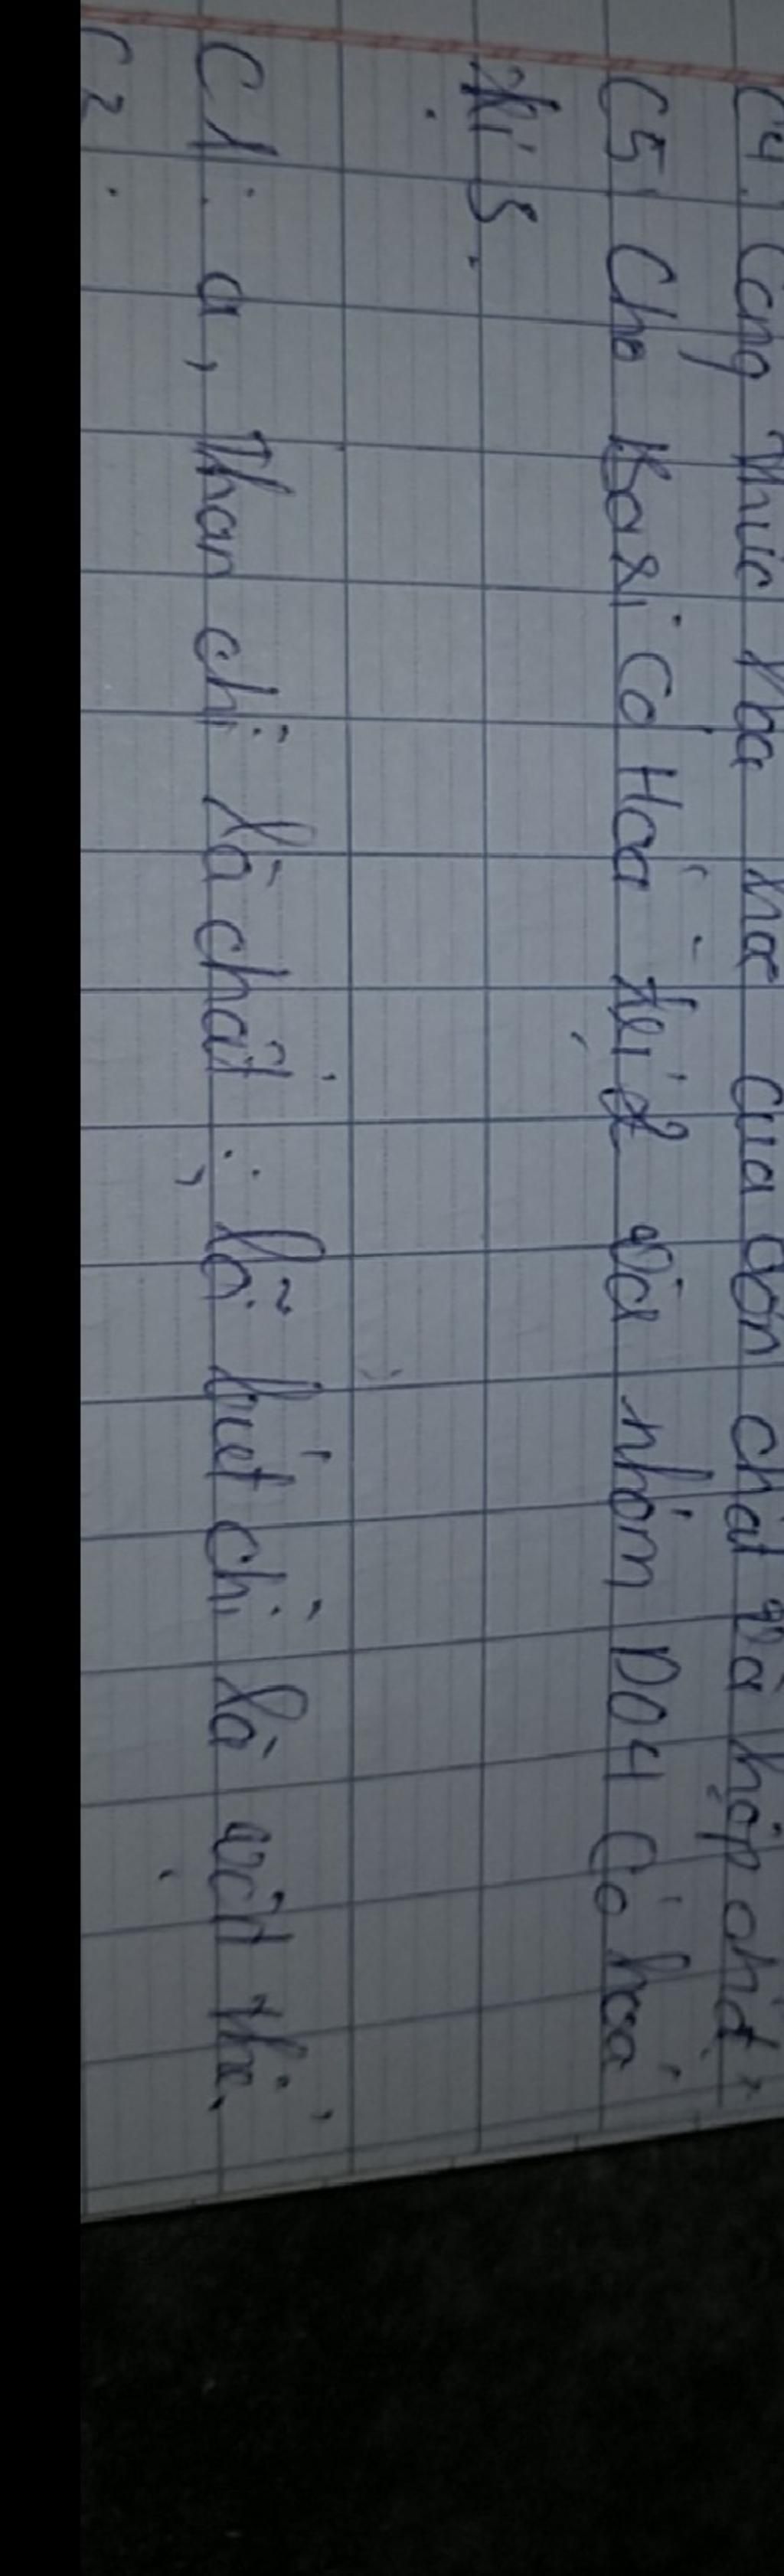 C4: Công thức hóa học của đơn chất và hợp chất
C5: Cho Bari có Hoá trị 2 và nhóm PO4 có hoá
trị 3.
C1: a, Than chì là chất; lõi bút chì là vật thể.
C2